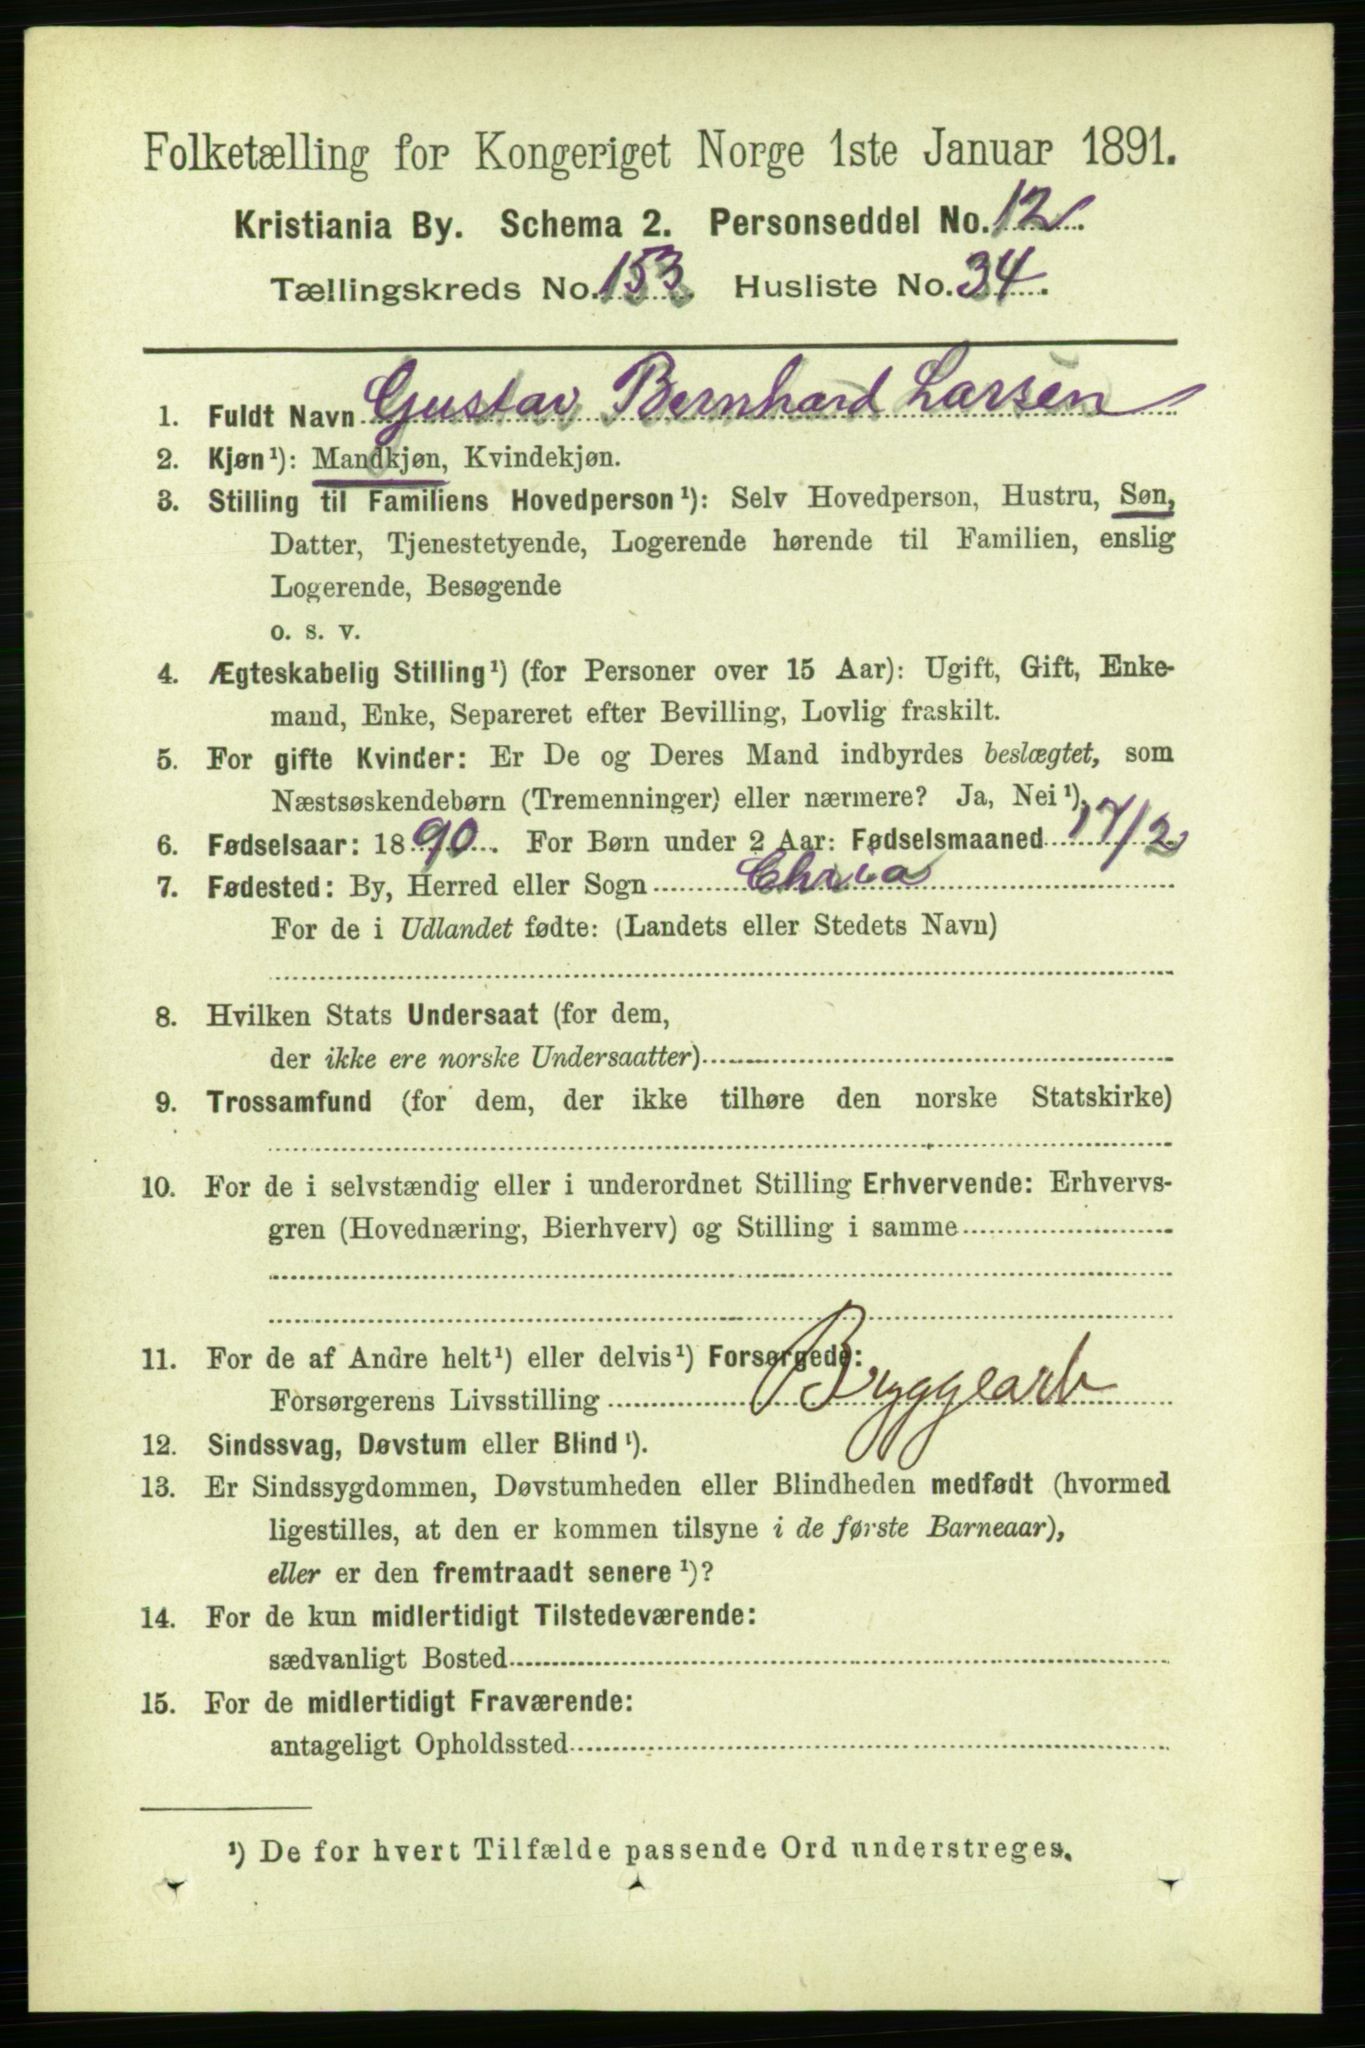 Folketælling for Kongeriget Norge 1ste Januar 1891.
Kristiania By. Schema 2. Personseddel No. 12.
Tællingskreds No. 153. Husliste No. 34.
1. Fuldt Navn Gustav Bernhard Larsen
2. Kjøn¹): Mandkjøn, Kvindekjøn.
3. Stilling til Familiens Hovedperson¹): Selv Hovedperson, Hustru, Søn,
Datter, Tjenestetyende, Logerende hørende til Familien, enslig
Logerende, Besøgende
o. s. v.
4. Ægteskabelig Stilling¹) (for Personer over 15 Aar): Ugift, Gift, Enke-
mand, Enke, Separeret efter Bevilling, Lovlig fraskilt.
5. For gifte Kvinder: Er De og Deres Mand indbyrdes beslægtet, som
Næstsøskendebørn (Tremenninger) eller nærmere? Ja, Nei¹).
6. Fødselsaar: 1890. For Børn under 2 Aar: Fødselsmaaned 17/2
7. Fødested: By, Herred eller Sogn Chria
For de i Udlandet fødte: (Landets eller Stedets Navn)
8. Hvilken Stats Undersaat (for dem,
der ikke ere norske Undersaatter)
9. Trossamfund (for dem, der ikke tilhøre den norske Statskirke)
10. For de i selvstændig eller i underordnet Stilling Erhvervende: Erhvervs-
gren (Hovednæring, Bierhverv) og Stilling i samme
11. For de af Andre helt¹) eller delvis¹) Forsørgede:
Forsørgerens Livsstilling Byggearb
12. Sindssvag, Døvstum eller Blind¹).
13. Er Sindssygdommen, Døvstumheden eller Blindheden medfødt (hvormed
ligestilles, at den er kommen tilsyne i de første Barneaar),
eller er den fremtraadt senere¹)?
14. For de kun midlertidigt Tilstedeværende:
sædvanligt Bosted
15. For de midlertidigt Fraværende:
antageligt Opholdssted
¹) De for hvert Tilfælde passende Ord understreges.